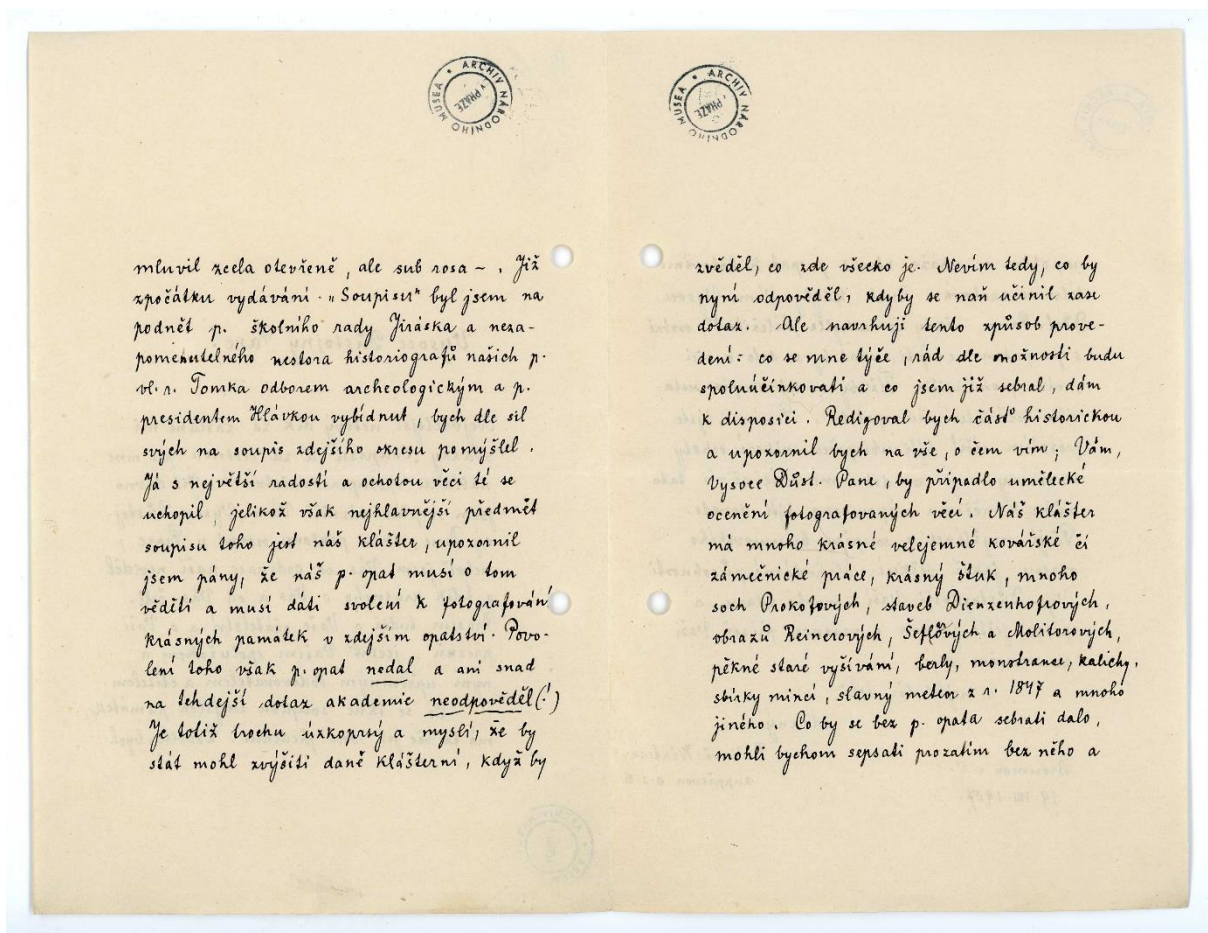 ARCHIV NÁRODNÍHO MUSEA
V PRAZE
mluvil zcela otevřeně, ale sub rosa – . Již
zpočátku vydávání „Soupisu" byl jsem na
podnět p. školního rady Jiráska a neza-
pomenutelného nestora historiografů našich p.
vl. r. Tomka odborem archeologickým a p.
presidentem Hlávkou vybídnut, bych dle sil
svých na soupis zdejšího okresu pomýšlel.
Já s největší radostí a ochotou věci té se
uchopil, jelikož však nejhlavnější předmět
soupisu toho jest náš klášter, upozornil
jsem pány, že náš p. opat musí o tom
věděti a musí dáti svolení k fotografování
krásných památek v zdejším opatství. Povo-
lení toho však p. opat nedal a ani snad
na tehdejší dotaz akademie neodpověděl(!)
Je totiž trochu úzkoprsý a myslí, že by
stát mohl zvýšiti daně klášterní, když by
ARCHIV NÁRODNÍHO MUSEA
V PRAZE
zvěděl, co zde všecko je. Nevím tedy, co by
nyní odpověděl, kdyby se naň učinil zase
dotaz. Ale navrhuji tento způsob prove-
dení: co se mne týče, rád dle možnosti budu
spoluúčinkovati a co jsem již sebral, dám
k disposici. Redigoval bych část historickou
a upozornil bych na vše, o čem vím; Vám,
Vysoce Důst. Pane, by připadlo umělecké
ocenění fotografovaných věcí. Náš klášter
má mnoho krásné velejemné kovářské či
zámečnické práce, krásný štuk, mnoho
soch Prokofových, staveb Dienzenhofrových,
obrazů Reinerových, Šeflových a Molitorových,
pěkné staré vyšívání, berly, monstrance, kalichy,
sbírky mincí, slavný meteor z r. 1847 a mnoho
jiného. Co by se bez p. opata sebrati dalo,
mohli bychom sepsati prozatím bez něho a